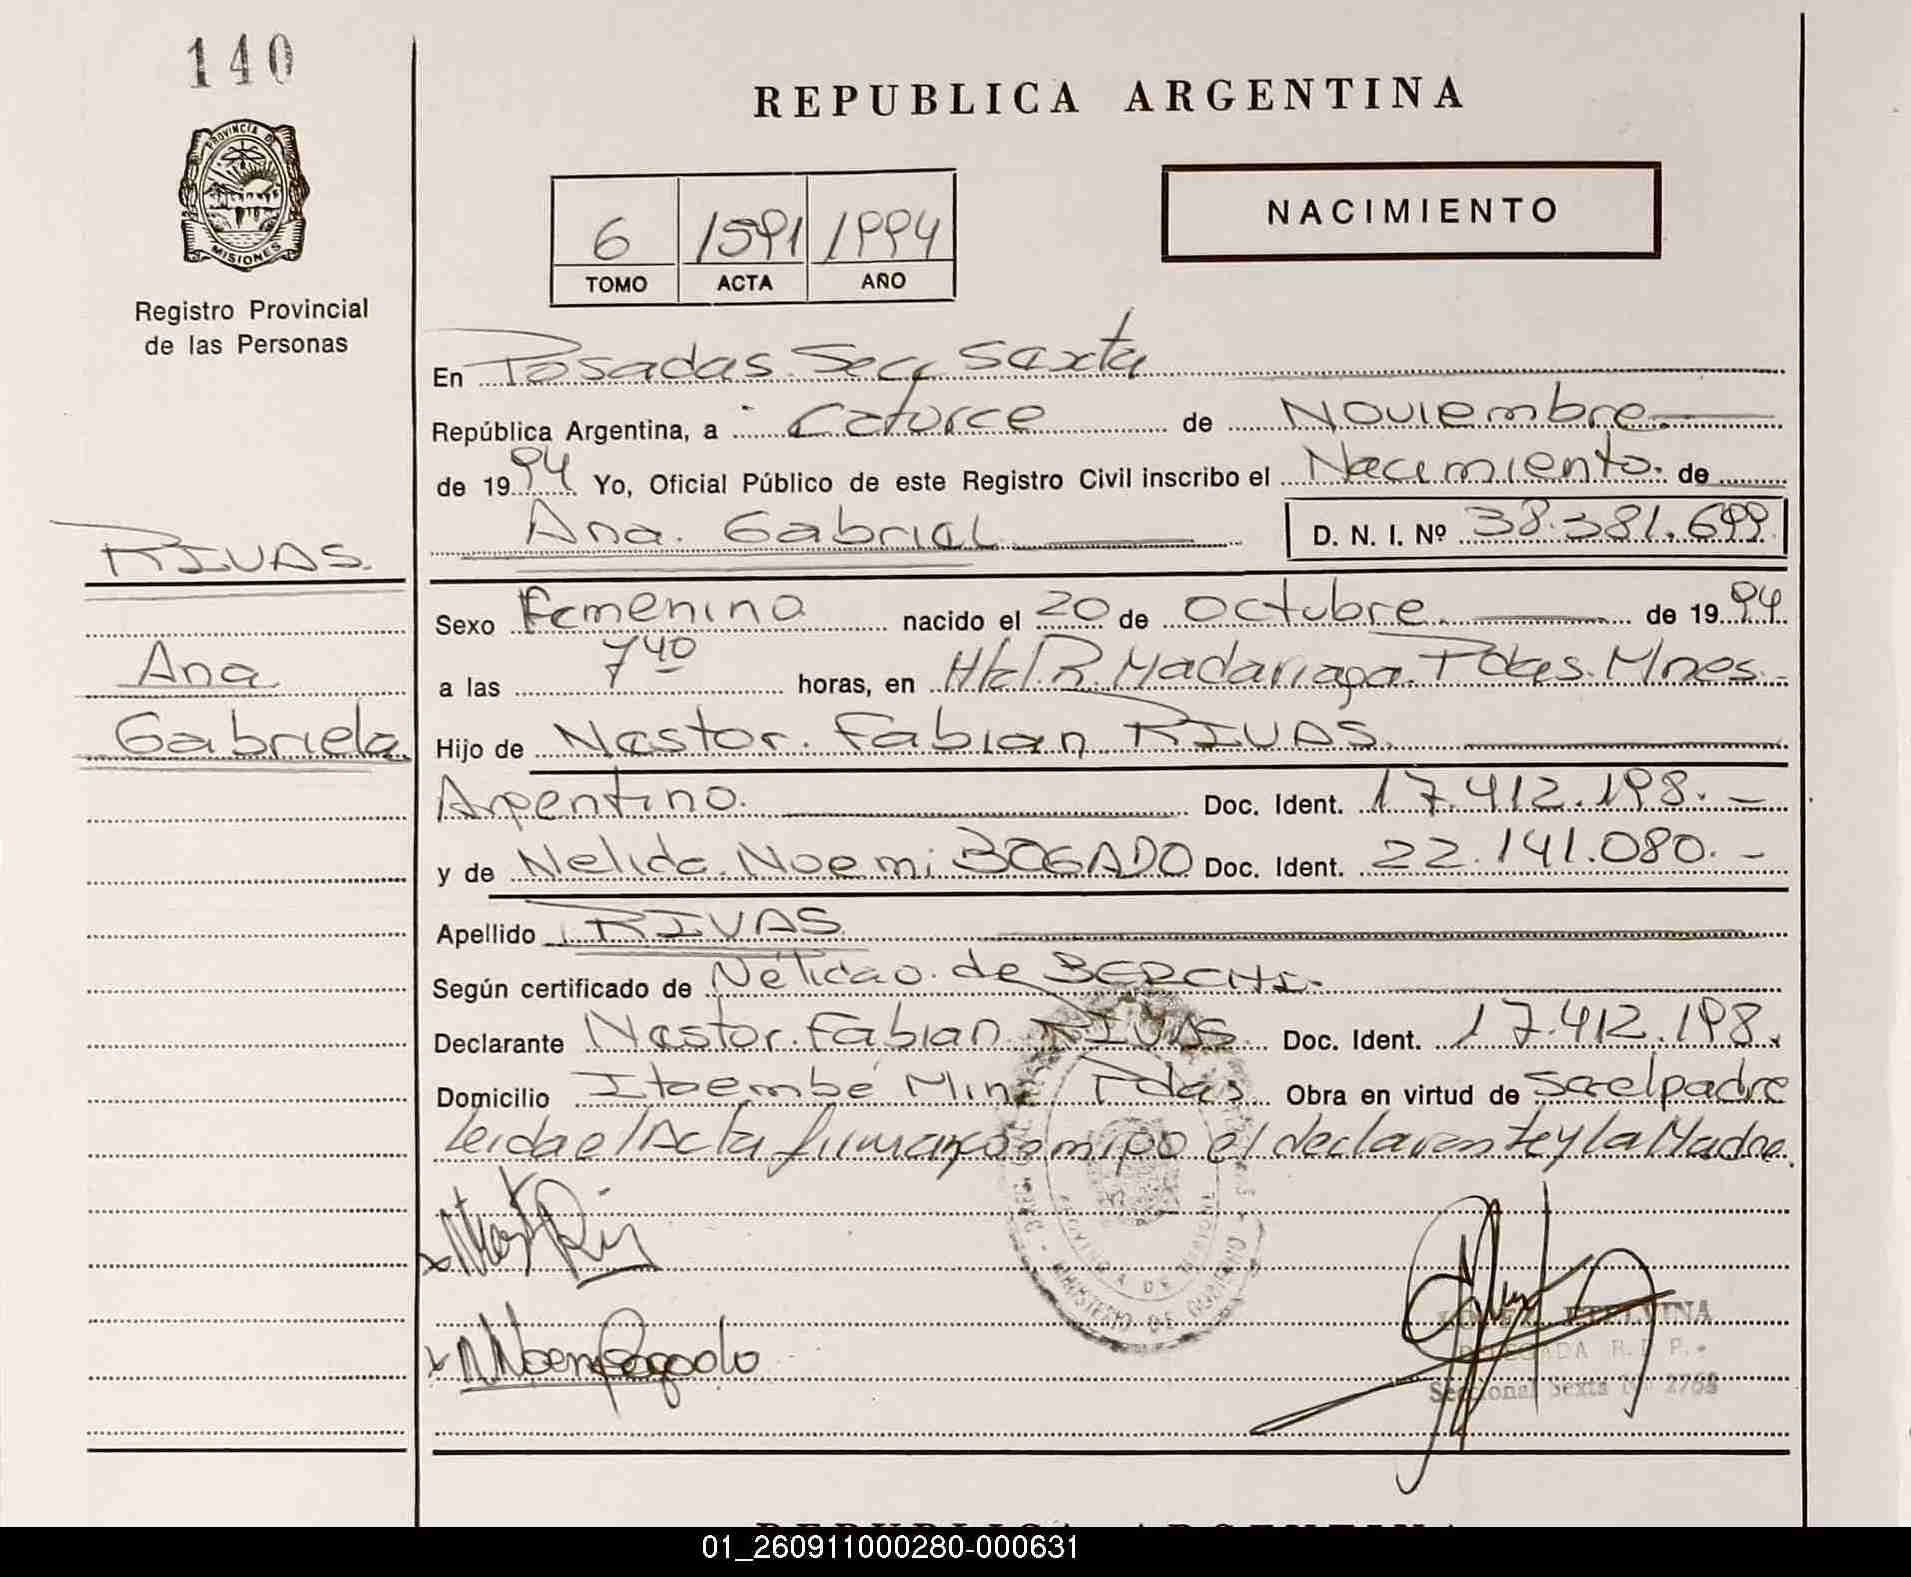 140
PROVINCIA DE
MISIONES
Registro Provincial
de las Personas
REPUBLICA ARGENTINA
NACIMIENTO
6 1591 1994
TOMO ACTA AÑO
En Posadas Secc Sexta
República Argentina, a Catorce de Noviembre
de 1994 Yo, Oficial Público de este Registro Civil inscribo el Nacimiento. de
Ana. Gabriel D. N. I. Nº 38.381.699
RIVAS.
Ana
Gabriela
Sexo Femenino nacido el 20 de Octubre de 1994
a las 7 40 horas, en R. Madariaga Pdas. Mnes.
Hijo de Nestor. Fabian RIVAS.
Argentino. Doc. Ident. 17.412.198.-
y de Nelida Noemi BOGADO Doc. Ident. 22.141.080.-
Apellido RIVAS
Según certificado de de
Declarante Nestor. Fabian RIVAS Doc. Ident. 17.412.198.
Domicilio Itaembé Miní Pdas Obra en virtud de ser el padre
Leida el Acta firman conmigo el declarante y la Madre.
MINISTERIO DE GOBIERNO
PROVINCIA DE MISIONES
LOPEZ ETELVINA
DELEGADA R. P. P.
Seccional Sexta Nº 2768
REPUBLICA ARGENTINA
01_260911000280-000631